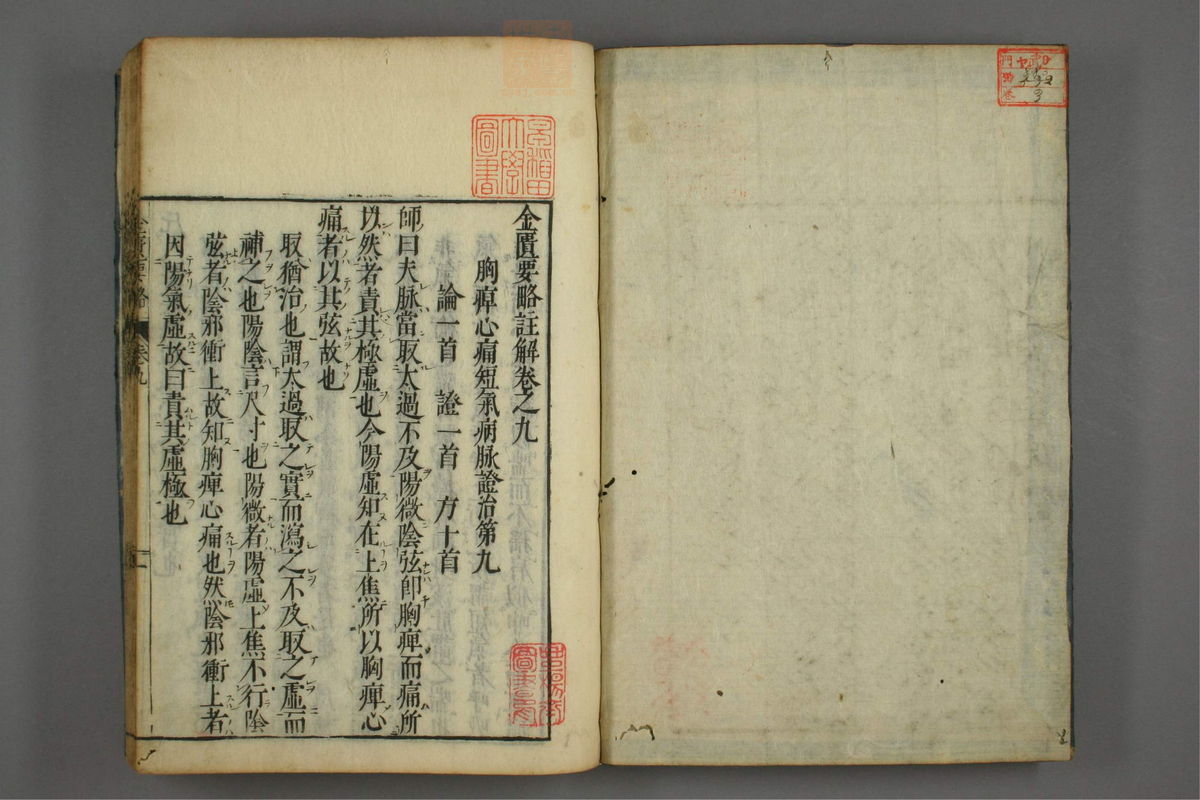 金匱要略註解卷之九
胸痺心痛短氣病脉證治第九
論一首 證一首 方十首
師曰夫脉當取太過不及陽微陰弦即胸痺而痛所
以然者責其極虛也今陽虛知在上焦所以胸痺心
痛者以其弦故也
取猶治也謂太過取之實而瀉之不及取之虛而
補之也陽陰言尺寸也陽微者陽虛上焦不行陰
弦者陰邪衝上故知胸痺心痛也然陰邪衝上者
因陽氣虛故曰責其虛極也
金匱要略 卷九
早稲田大學圖書